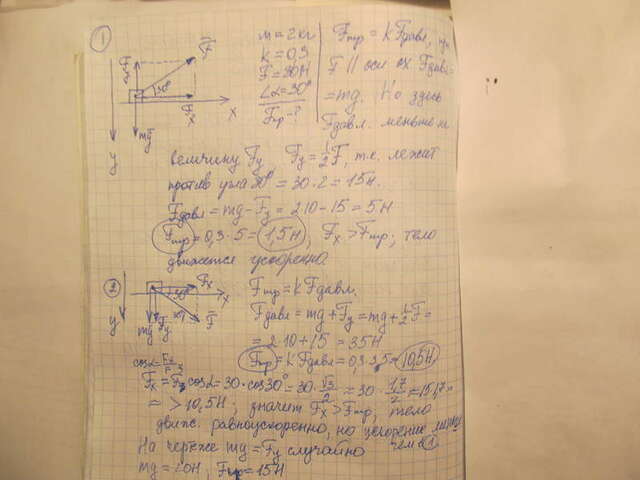 1
m = 2кг
k = 0,3
F = 30Н
∠α = 30°
Fтр - ?
Fтр = k Fдавл, при
F || оси ox Fдавл =
= mg. Но здесь
Fдавл. меньше н.
F
Fy
30°
Fx
x
mg
y
величину Fy, Fy = 1/2 F, т.к. лежат
против угла 30° = 30:2 = 15Н.
Fдавл = mg - Fy = 2·10 - 15 = 5Н
Fтр = 0,3·5 = 1,5Н, Fx > Fтр; тело
движется ускоренно.
2
Fx
30°
x
y
mg
Fy
F
Fтр = k Fдавл.
Fдавл = mg + Fy = mg + 1/2 F =
= 2·10 + 15 = 35Н
Fтр = k Fдавл = 0,3·35 = 10,5Н.
cosα = Fx/F
Fx = F cosα = 30·cos30° = 30·√3/2 ≈ 30·1,7/2 = 15·1,7 =
≈ > 10,5Н; значит Fx > Fтр, тело
движ. равноускоренно, но ускорение
чем 1
На чертеже mg = Fy случайно
mg = 20Н, Fтр = 15Н